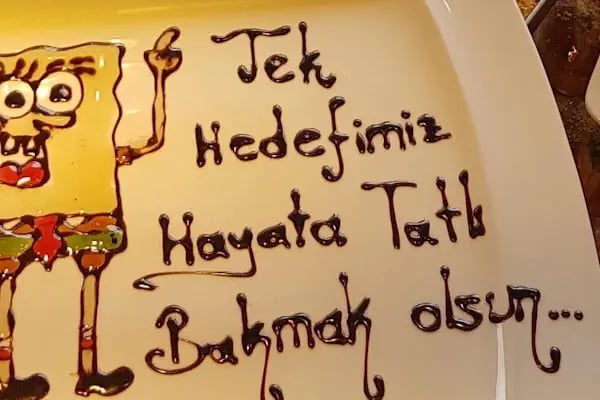 Tek
Hedefimiz
Hayata Tatlı
Bakmak olsun...